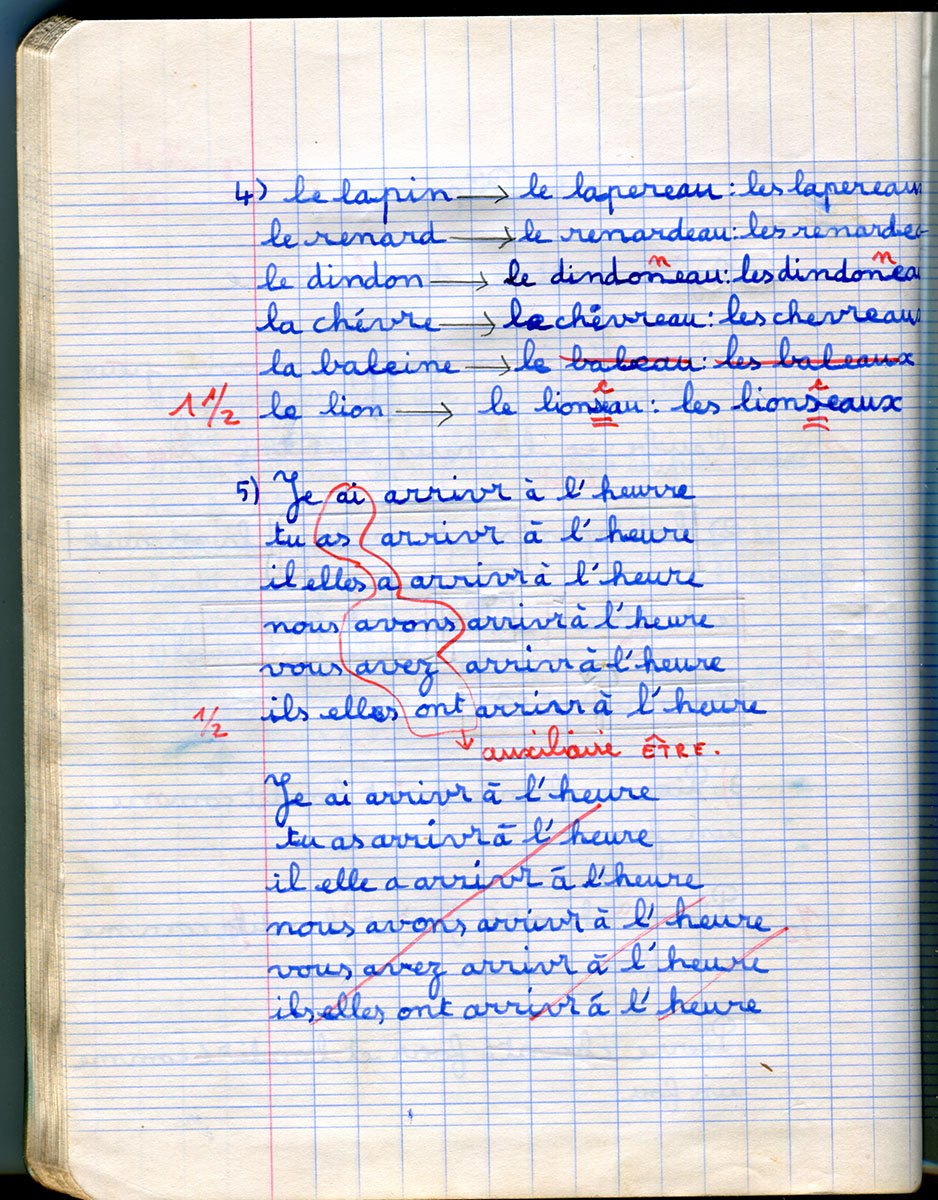 4) le lapin → le lapereau : les lapereaux
le renard → le renardeau : les renarde
n n
le dindon → le dindoneau : les dindonea
la chévre → le chévreau : les chevreaux
la baleine → le baleau : les baleaux
c c
1 1/2 le lion → le lionseau : les lionseaux
5) Je ai arrivr à l'heurre
tu as arrivr à l'heure
il elles a arrivr à l'heure
nous avons arrivr à l'heure
vous avez arrivr à l'heure
1/2 ils elles ont arrivr à l'heure
auxiliaire ÊTRE.
Je ai arrivr à l'heure
tu as arrivr à l'heure
il elle a arrivr à l'heure
nous avons arrivr à l'heure
vous avez arrivr à l'heure
ils elles ont arrivr à l'heure